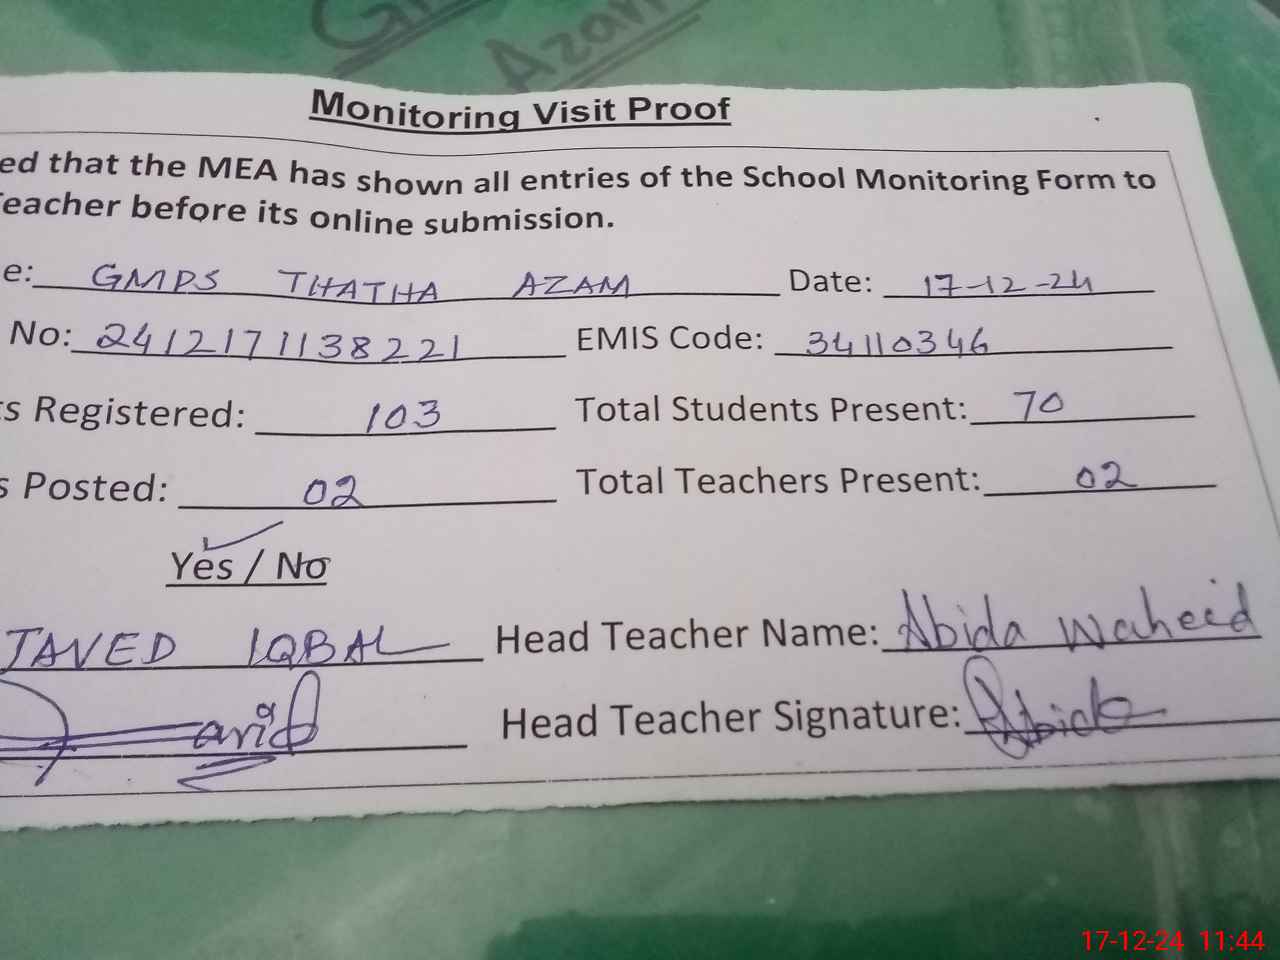 Azam
Monitoring Visit Proof
ed that the MEA has shown all entries of the School Monitoring Form to
Teacher before its online submission.
e: GMPS THATHA AZAM Date: 17-12-24
No: 2412171138221 EMIS Code: 34110346
ts Registered: 103 Total Students Present: 70
s Posted: 02 Total Teachers Present: 02
Yes / No
JAVED IQBAL Head Teacher Name: Abida Waheed
Javid Head Teacher Signature: Abida
17-12-24 11:44